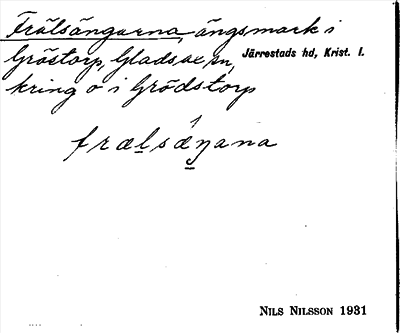 Frälsängarna, ängsmark i
Gröstorp, Gladsax sn, Järrestads hd, Krist. l.
kring o i Grödstorp
frælsæŋana
NILS NILSSON 1931